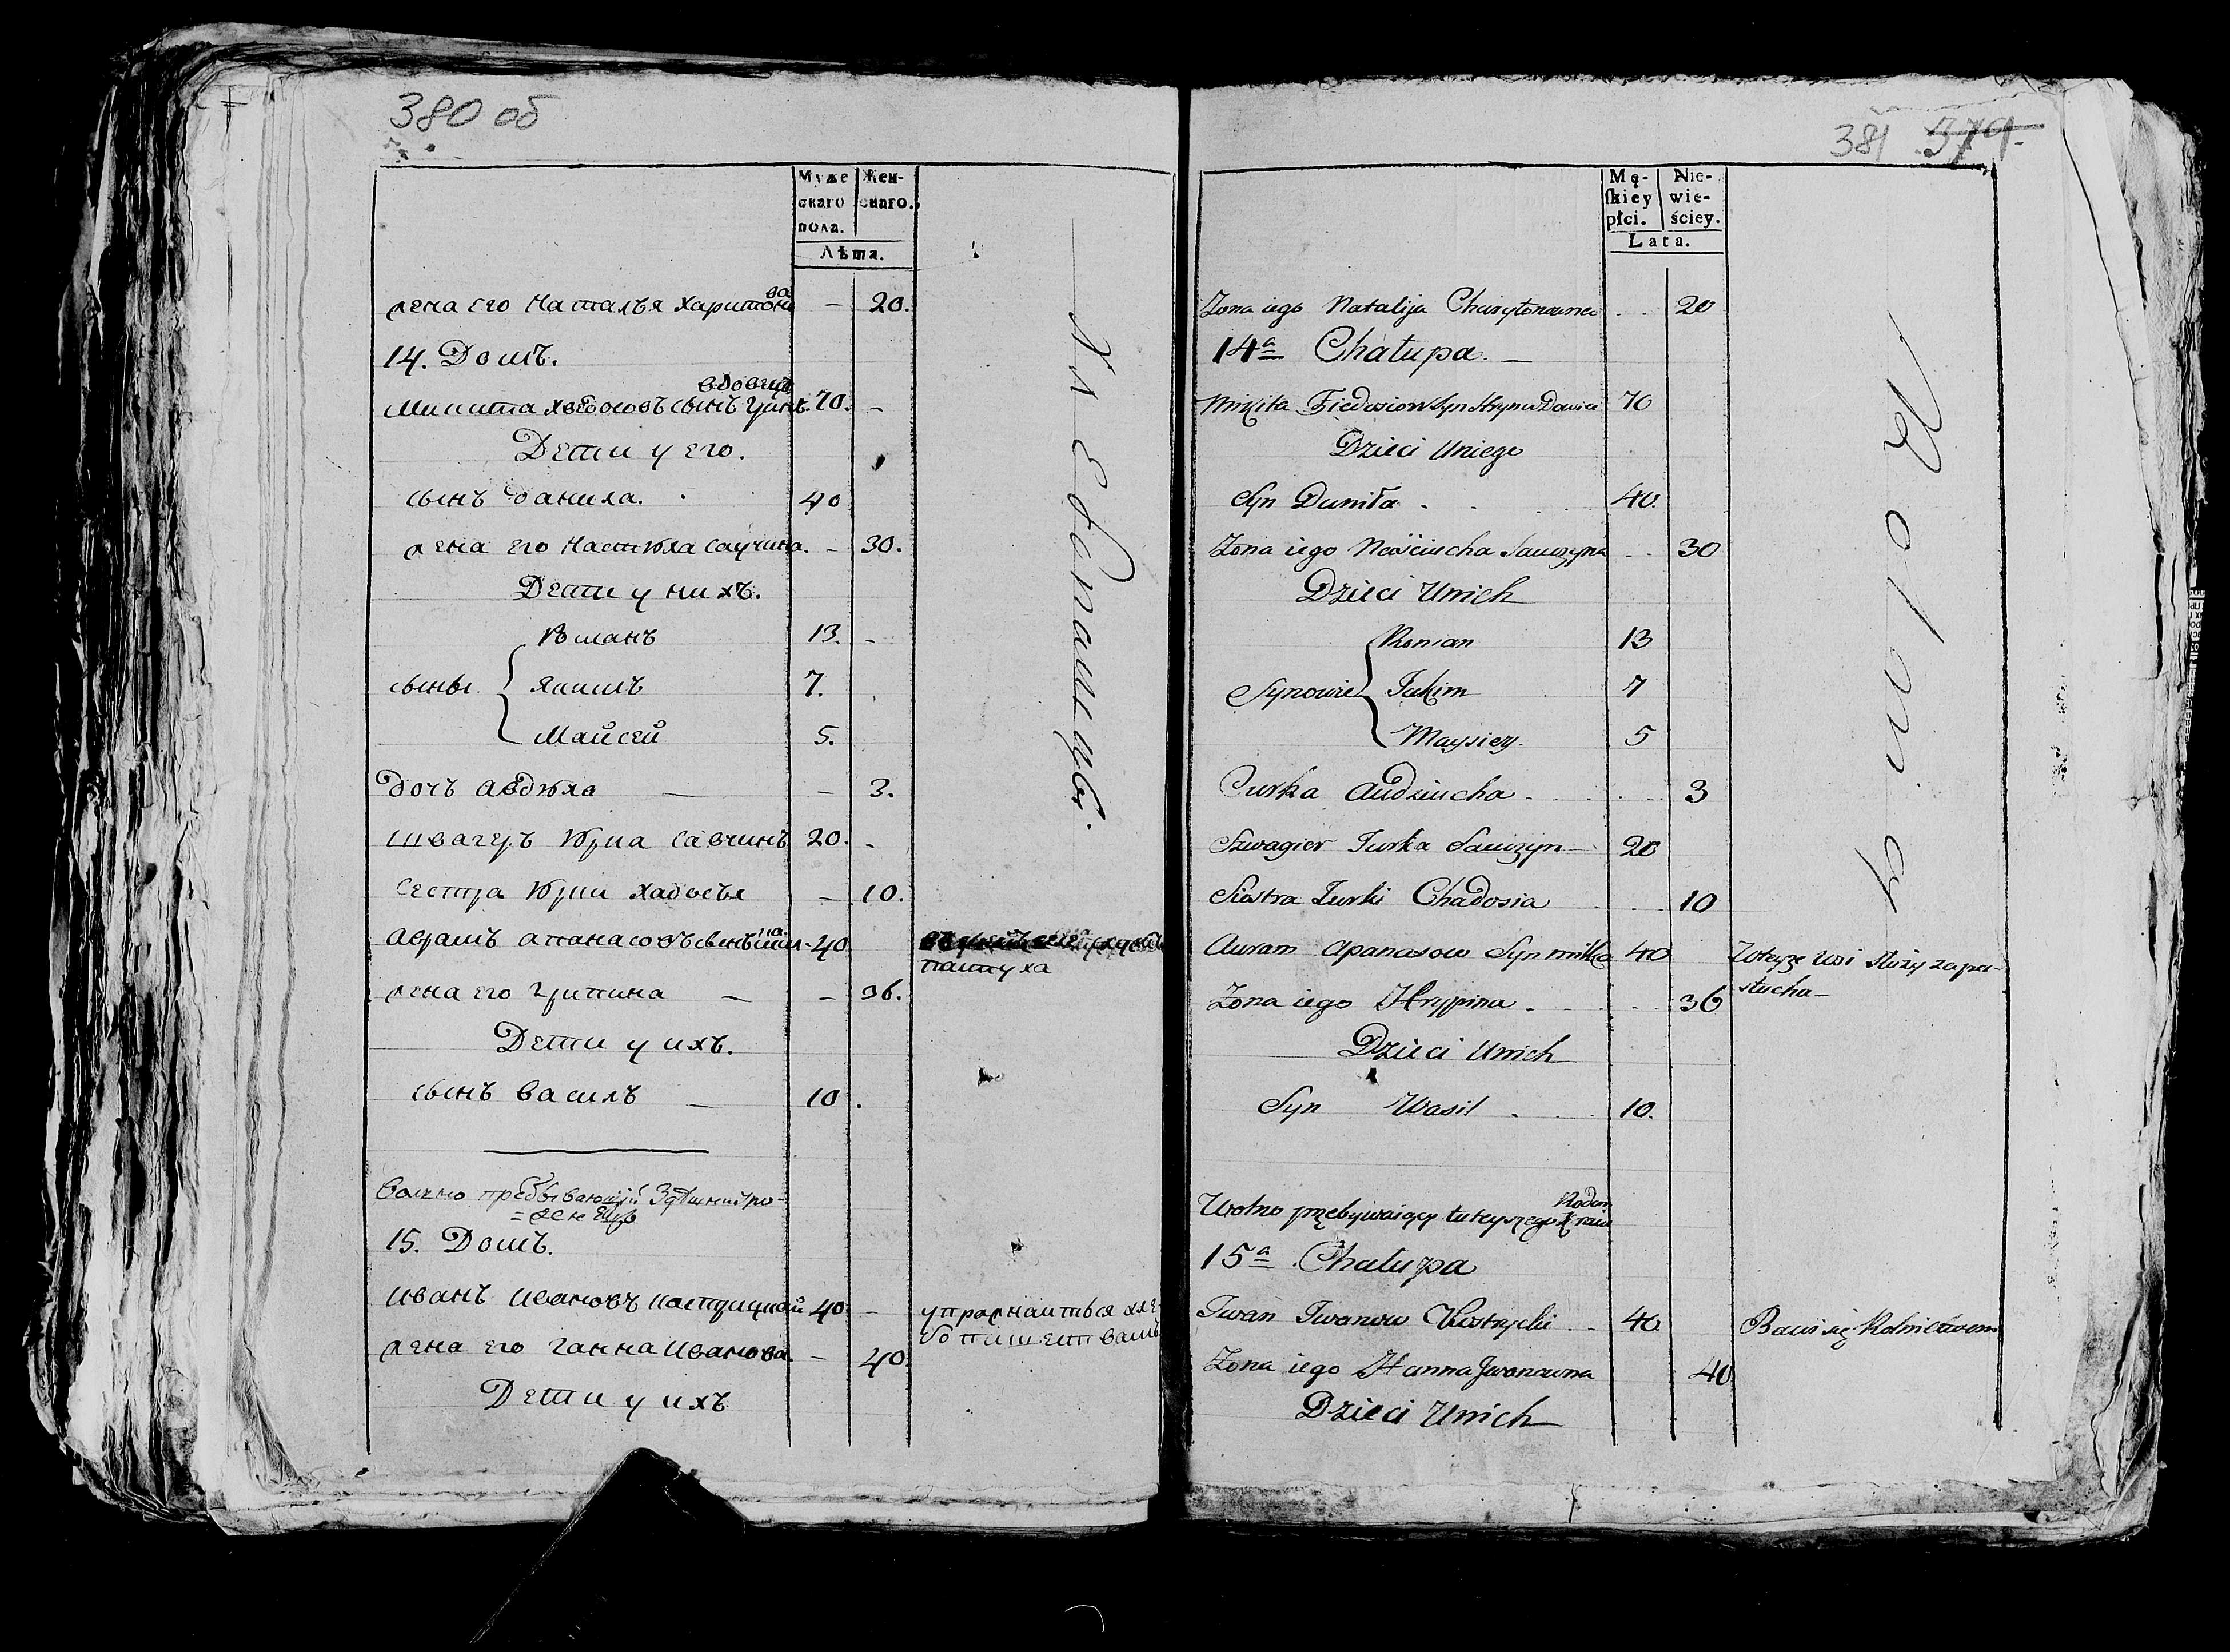 380 об
Муже
скаго
пола.
Жен-
скаго.
Лѣта.
жена его Наталья Харитонова – 20.
14. Домъ.
Микита Хведосовъ сынъ Гринь вдовецъ 70. –
Дети у его.
сынъ Данила. 40
жена его Настюха Саучина. – 30.
Дети у нихъ.
Романъ 13. –
сыны Якимъ 7.
Майсей 5.
Дочь Авдюха – – 3.
швагеръ Юрка Савчинъ 20. –
Сестра Юрки Хадосья – 10.
Аврамъ Апанасовъ сынъ 40
пастуха
жена его Грипина – – 36.
Дети у ихъ.
сынъ Василь – 10.
Вольно пребывающій
15. Домъ.
Иванъ Ивановъ Кастрицкой 40. – упражнаиться хле-
бопашествамъ
жена его Ганна Иванова. – 40.
Дети у ихъ
381 379.
Mę-
skiey
płci.
Nie-
wie-
ściey.
Lata.
Zona iego Natalija Charytonowna . . 20
14a Chałupa. –
Mikita Fiedosiow Syn 70
Dzieci Uniego
Syn Daniła . . . 40.
Zona iego Naściucha Sauczyna . . 30
Dzieci Unich
Roman 13
Synowie Jakim 7
Maysiey. 5
Curka Audziucha . . . 3
Szwagier Jurka Sauczyn – 20
Siostra Jurki Chadosia . . 10
Auram Apanasow Syn 40 Wteyże wsi służy za pa-
stucha –
Zona iego Hrypina . . . 36
Dzieci Unich
Syn Wasil . . 10.
Wolno przebywaiący tuteyszego kraiu Rodem
15a Chałupa
Iwan Iwanow Kostrycki – 40 Bawi się Rolnictwem
Zona iego Hanna Jwanowna 40
Dzieci Unich